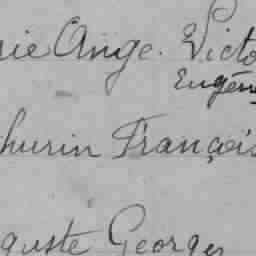 rie Ange. Victo
Eugén
hurin François
guste Georges